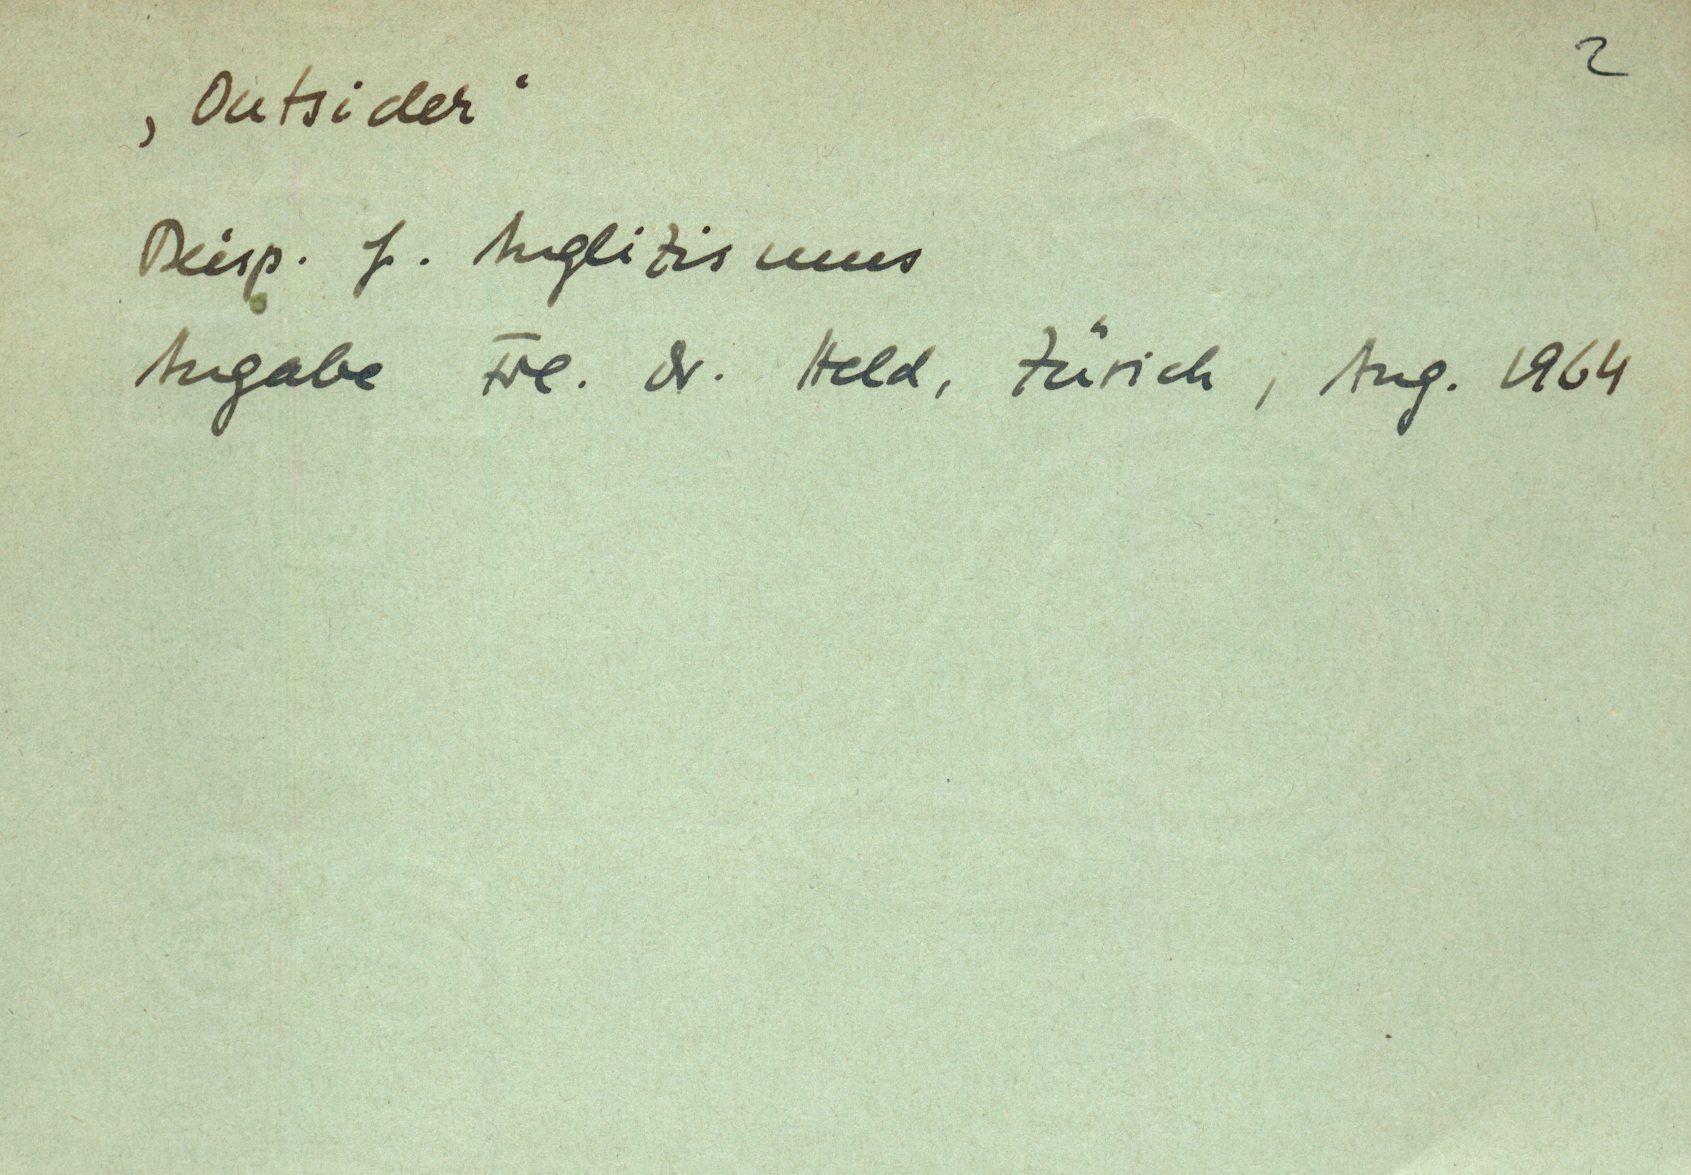 2
‚Outsider‘
Beisp. f. Anglizismus
Angabe Frl. Dr. Held, Zürich, Aug. 1964